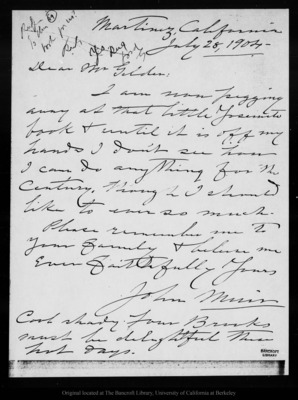 Martinez, California
July 28, 1904.
Dear Mr Gilder:
I am now pegging
away at that little Yosemite
book & until it is off my
hands I don't see how
I can do anything for the
Century, though I should
like to ever so much.
Please remember me to
your family & believe me
Ever faithfully Yours
John Muir
Cool shady Four Brooks
must be delightful these
hot days.
BANCROFT
LIBRARY
Original located at The Bancroft Library, University of California at Berkeley